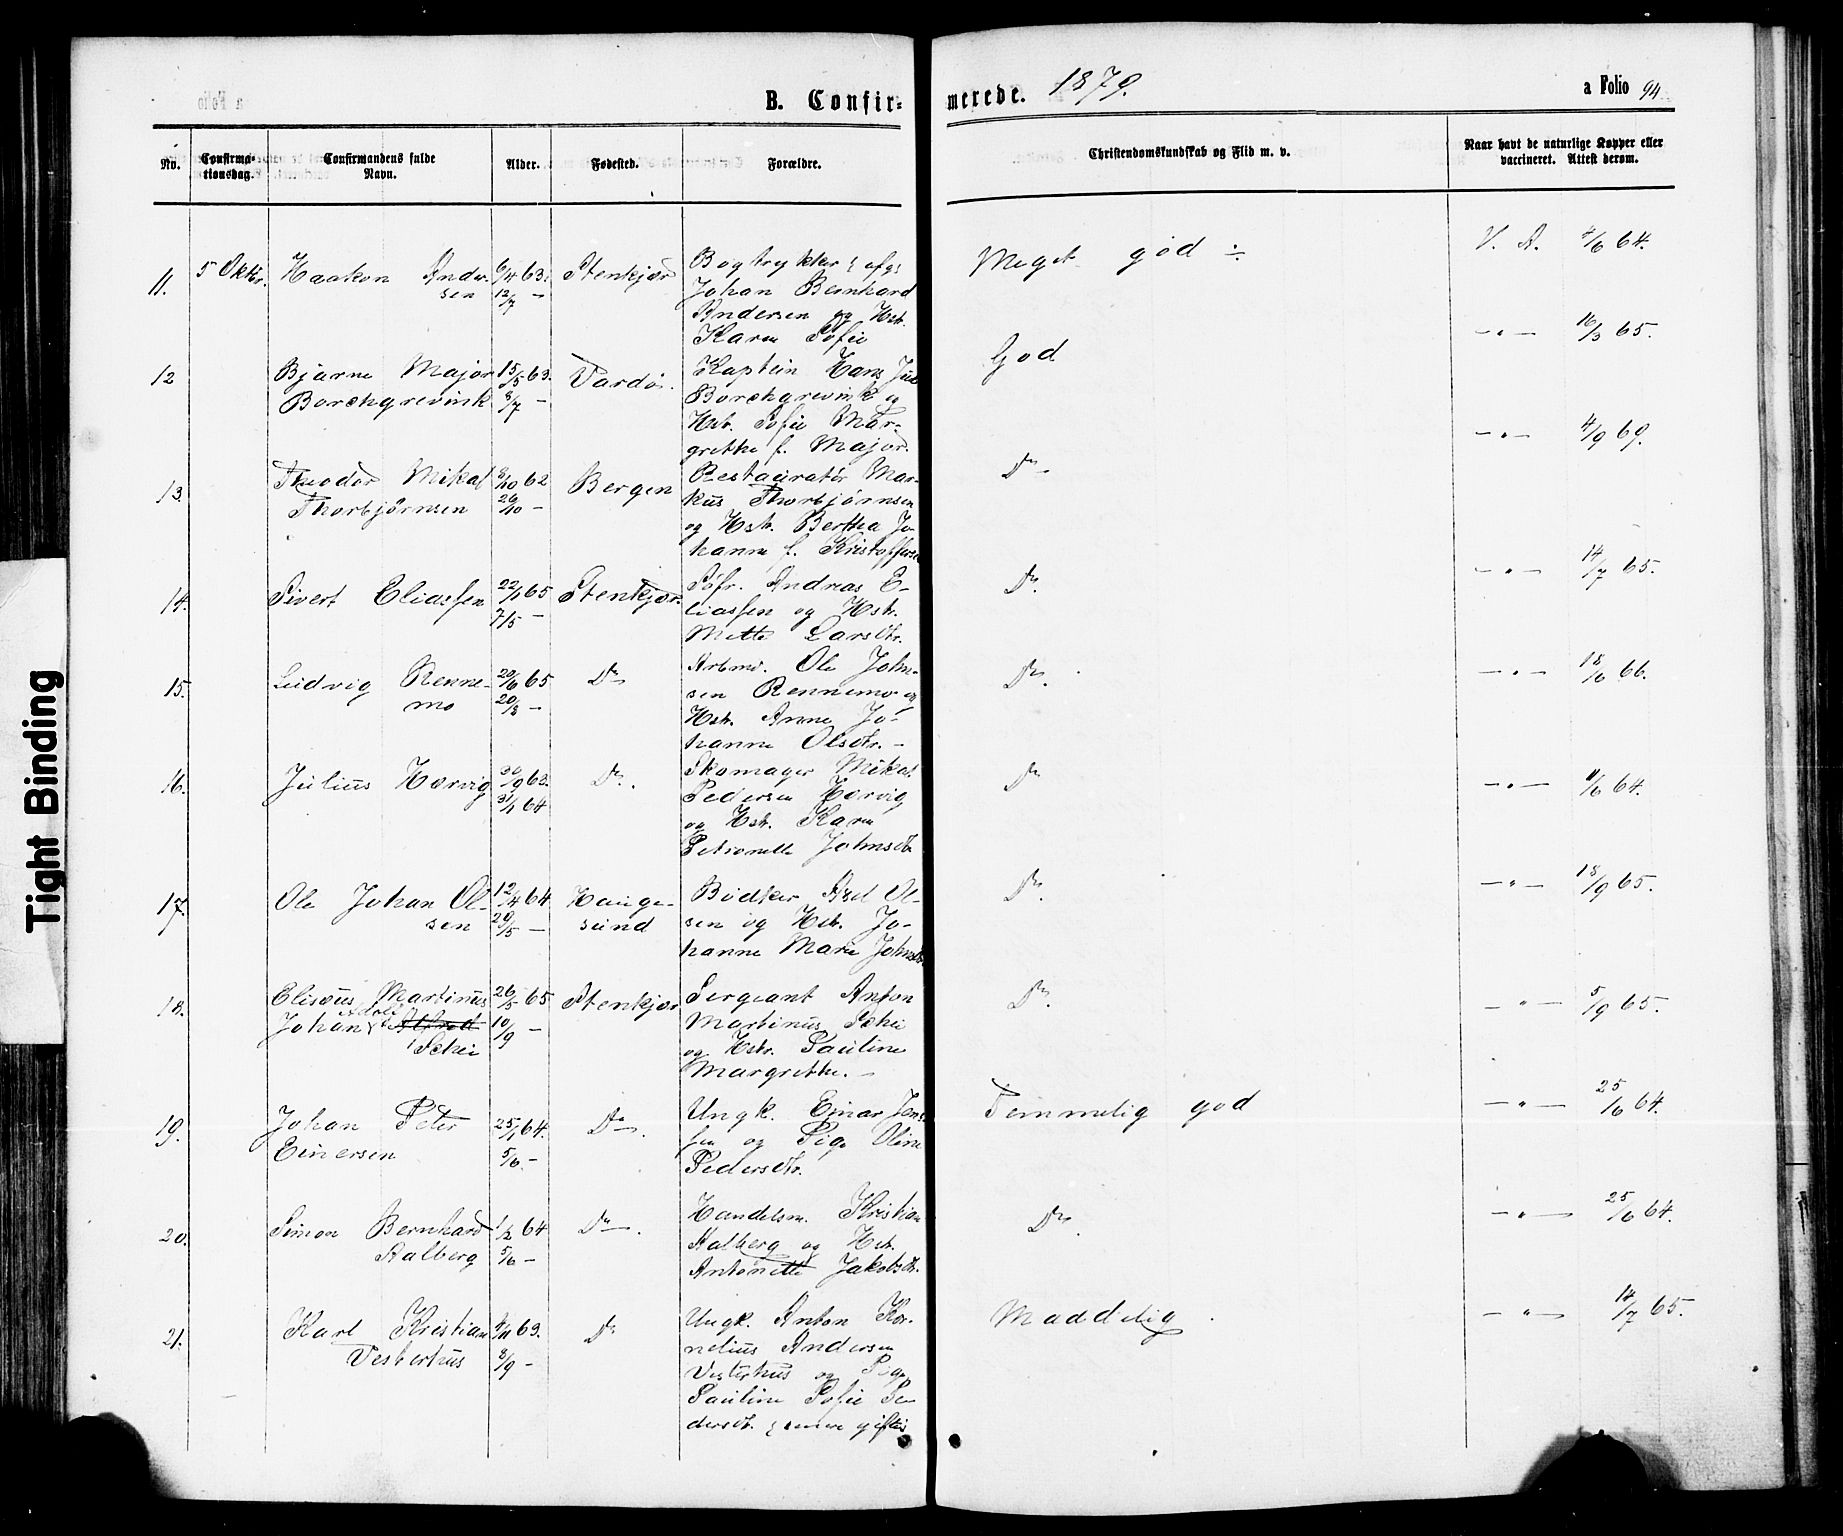 B. Confir-
merede. 1879.
a Folio 94
No.
Confirma-
tionsdag.
Confirmandens fulde
Navn.
Alder.
Fødested.
Forældre.
Christendomskundskab og Flid m. v.
Naar havt de naturlige Kopper eller
vaccineret. Attest derom.
11.
5 Oktbr.
Haakon Ander-
sen
6/4 63.
12/7 –
Stenkjær
Bogtrykker
Johan Bernhard
Andersen og Hst.
Karen Sofie
Meget god ÷
V. A. 4/6 64.
12
Bjarne Major
Borchgrevink
15/5 63.
8/7 –
Vardø.
Kaptein Hans Juel
Borchgrevink og
Hst. Sofie Mar-
grethe f. Major.
God
– " – 16/3 65.
13.
Theodor Mikal
Thorbjørnsen
8/10 62
26/10 –
Bergen
Restauratør Mar-
kus Thorbjørnsen
og Hst. Bertha Jo-
hanne f. Kristoffersen
Do
– " – 4/9 69.
14.
Sivert Eliassen
22/1 65
7/5 –
Stenkjær.
Søfr. Andreas E-
liassen og Hst.
Mette Larsdtr.
Do.
– " – 14/7 65.
15.
Ludvig Renne-
mo
20/6 65
20/8 –
Do
Arbmd. Ole John-
sen Rennemo og
Hst. Anne Jo-
hanne Olsdtr. –
Do.
– " – 18/6 66.
16.
Julius Horvig
30/9 63.
31/1 64
Do.
Skomager Mikal
Pedersen Horvig
og Hst. Karen
Petronelle Johnsdtr
Do
– " – 64.
17.
Ole Johan Ol-
sen
12/4 64.
29/5 –
Hauge-
sund
Bødker Axel Ol-
sen og Hst. Jo-
hanne Marie Johnsdtr
Do.
– " – 18/9 65.
18.
Elisæus Martinus
Adolf
Johan Alfred
Schei
26/5 65
10/9 –
Stenkjær
Sergeant Anton
Martinus Schei
og Hstr. Pauline
Margrethe. –
Do.
– " – 5/9 65.
19.
Johan Peter
Einersen
25/1 64.
5/6 –
Do.
Ungk. Einar Jens-
sen og Pige Oline
Pedersdtr.
Temmelig god
– " – 25/6 64.
20.
Simon Bernhard
Aalberg
1/2 64
5/6 –
Do.
Handelsm. Kristian
Aalberg og Hst.
Antonette Jakobsdtr.
Do.
– " – 25/6 64.
21.
Karl Kristian
Vesterhus
4/11 63.
8/9 –
Do
Ungk. Anton Kor-
nelius Andersen
Vesterhus og Pige
Pauline Sofie Pe-
dersdtr. senere giftes
Maadelig
– " – 14/7 65.
Tight Binding